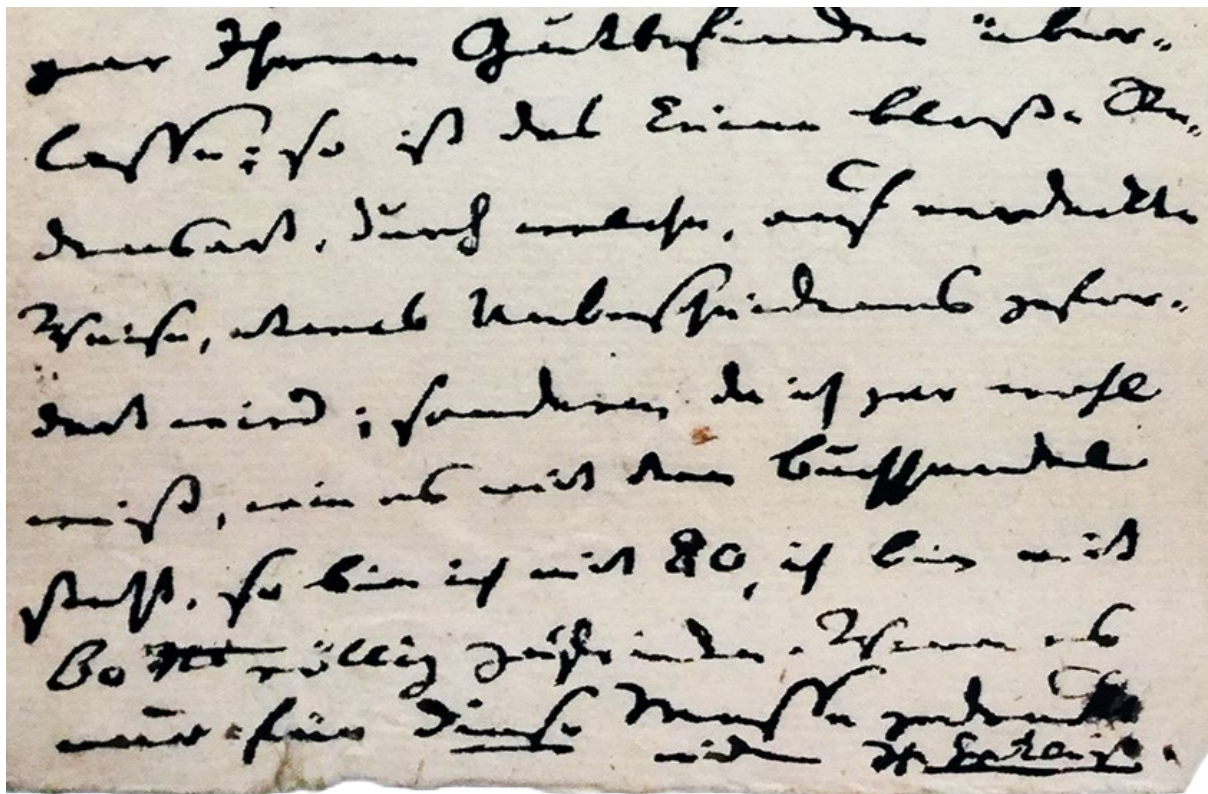 gar Ihrem Gutbefinden über-
lasse: so ist das keine bloße Re-
densart, durch welche, auf verdeckte
Weise, etwas Unbescheidenes gefor-
dert wird; sondern, da ich gar wohl
weiß, wie es mit dem Buchhandel
steht, so bin ich mit 80, ich bin mit
60 völlig zufrieden. Wenn es
nur für diese Messe gedruckt
wird H. v. Kleist.